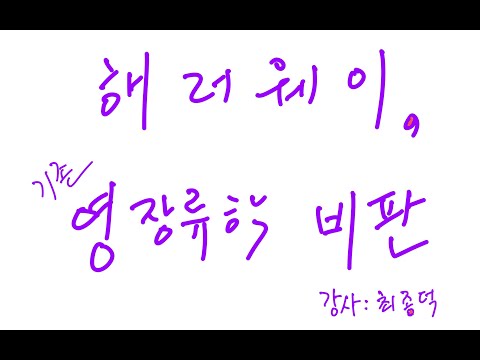 해러웨이,
기존
영장류학 비판
강사: 최종덕